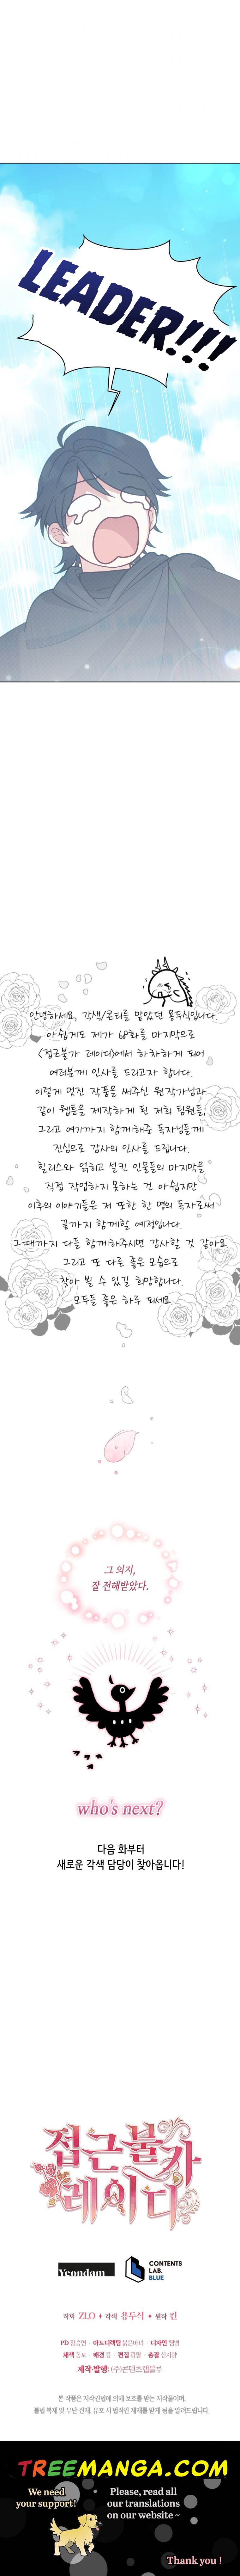 LEADER!!!
안녕하세요, 각색/콘티를 맡았던 용두식입니다.
아쉽게도 제가 68화를 마지막으로
<접근불가 레이디>에서 하차하게 되어
여러분께 인사를 드리고자 합니다.
이렇게 멋진 작품을 써주신 원작가님과
같이 웹툰을 제작하게 된 저희 팀원들,
그리고 여기까지 함께해준 독자님들께
진심으로 감사의 인사를 드립니다.
힐리스와 얽히고 설킨 인물들의 마지막을
직접 작업하지 못하는 건 아쉽지만
이후의 이야기들은 저 또한 한 명의 독자로써
끝까지 함께할 예정입니다.
그때까지 다들 함께해주시면 감사할 것 같아요.
그리고 또 다른 좋은 모습으로
찾아 뵐 수 있길 희망합니다.
모두들 좋은 하루 되세요.
그 의지,
잘 전해받았다.
who's next?
다음 화부터
새로운 각색 담당이 찾아옵니다!
접근불가
레이디
Yeondam
CONTENTS
LAB.
BLUE
작화 ZLO ♦ 각색 용두식 ♦ 원작 킨
제작·발행: (주)콘텐츠랩블루
본 작품은 저작권법에 의해 보호를 받는 저작물이며,
불법 복제 및 무단 전재, 유포 시 법적인 제재를 받게 됨을 알려드립니다.
TREEMANGA.COM
We need
your support!
Please, read all
our translations
on our website ~
Thank you !